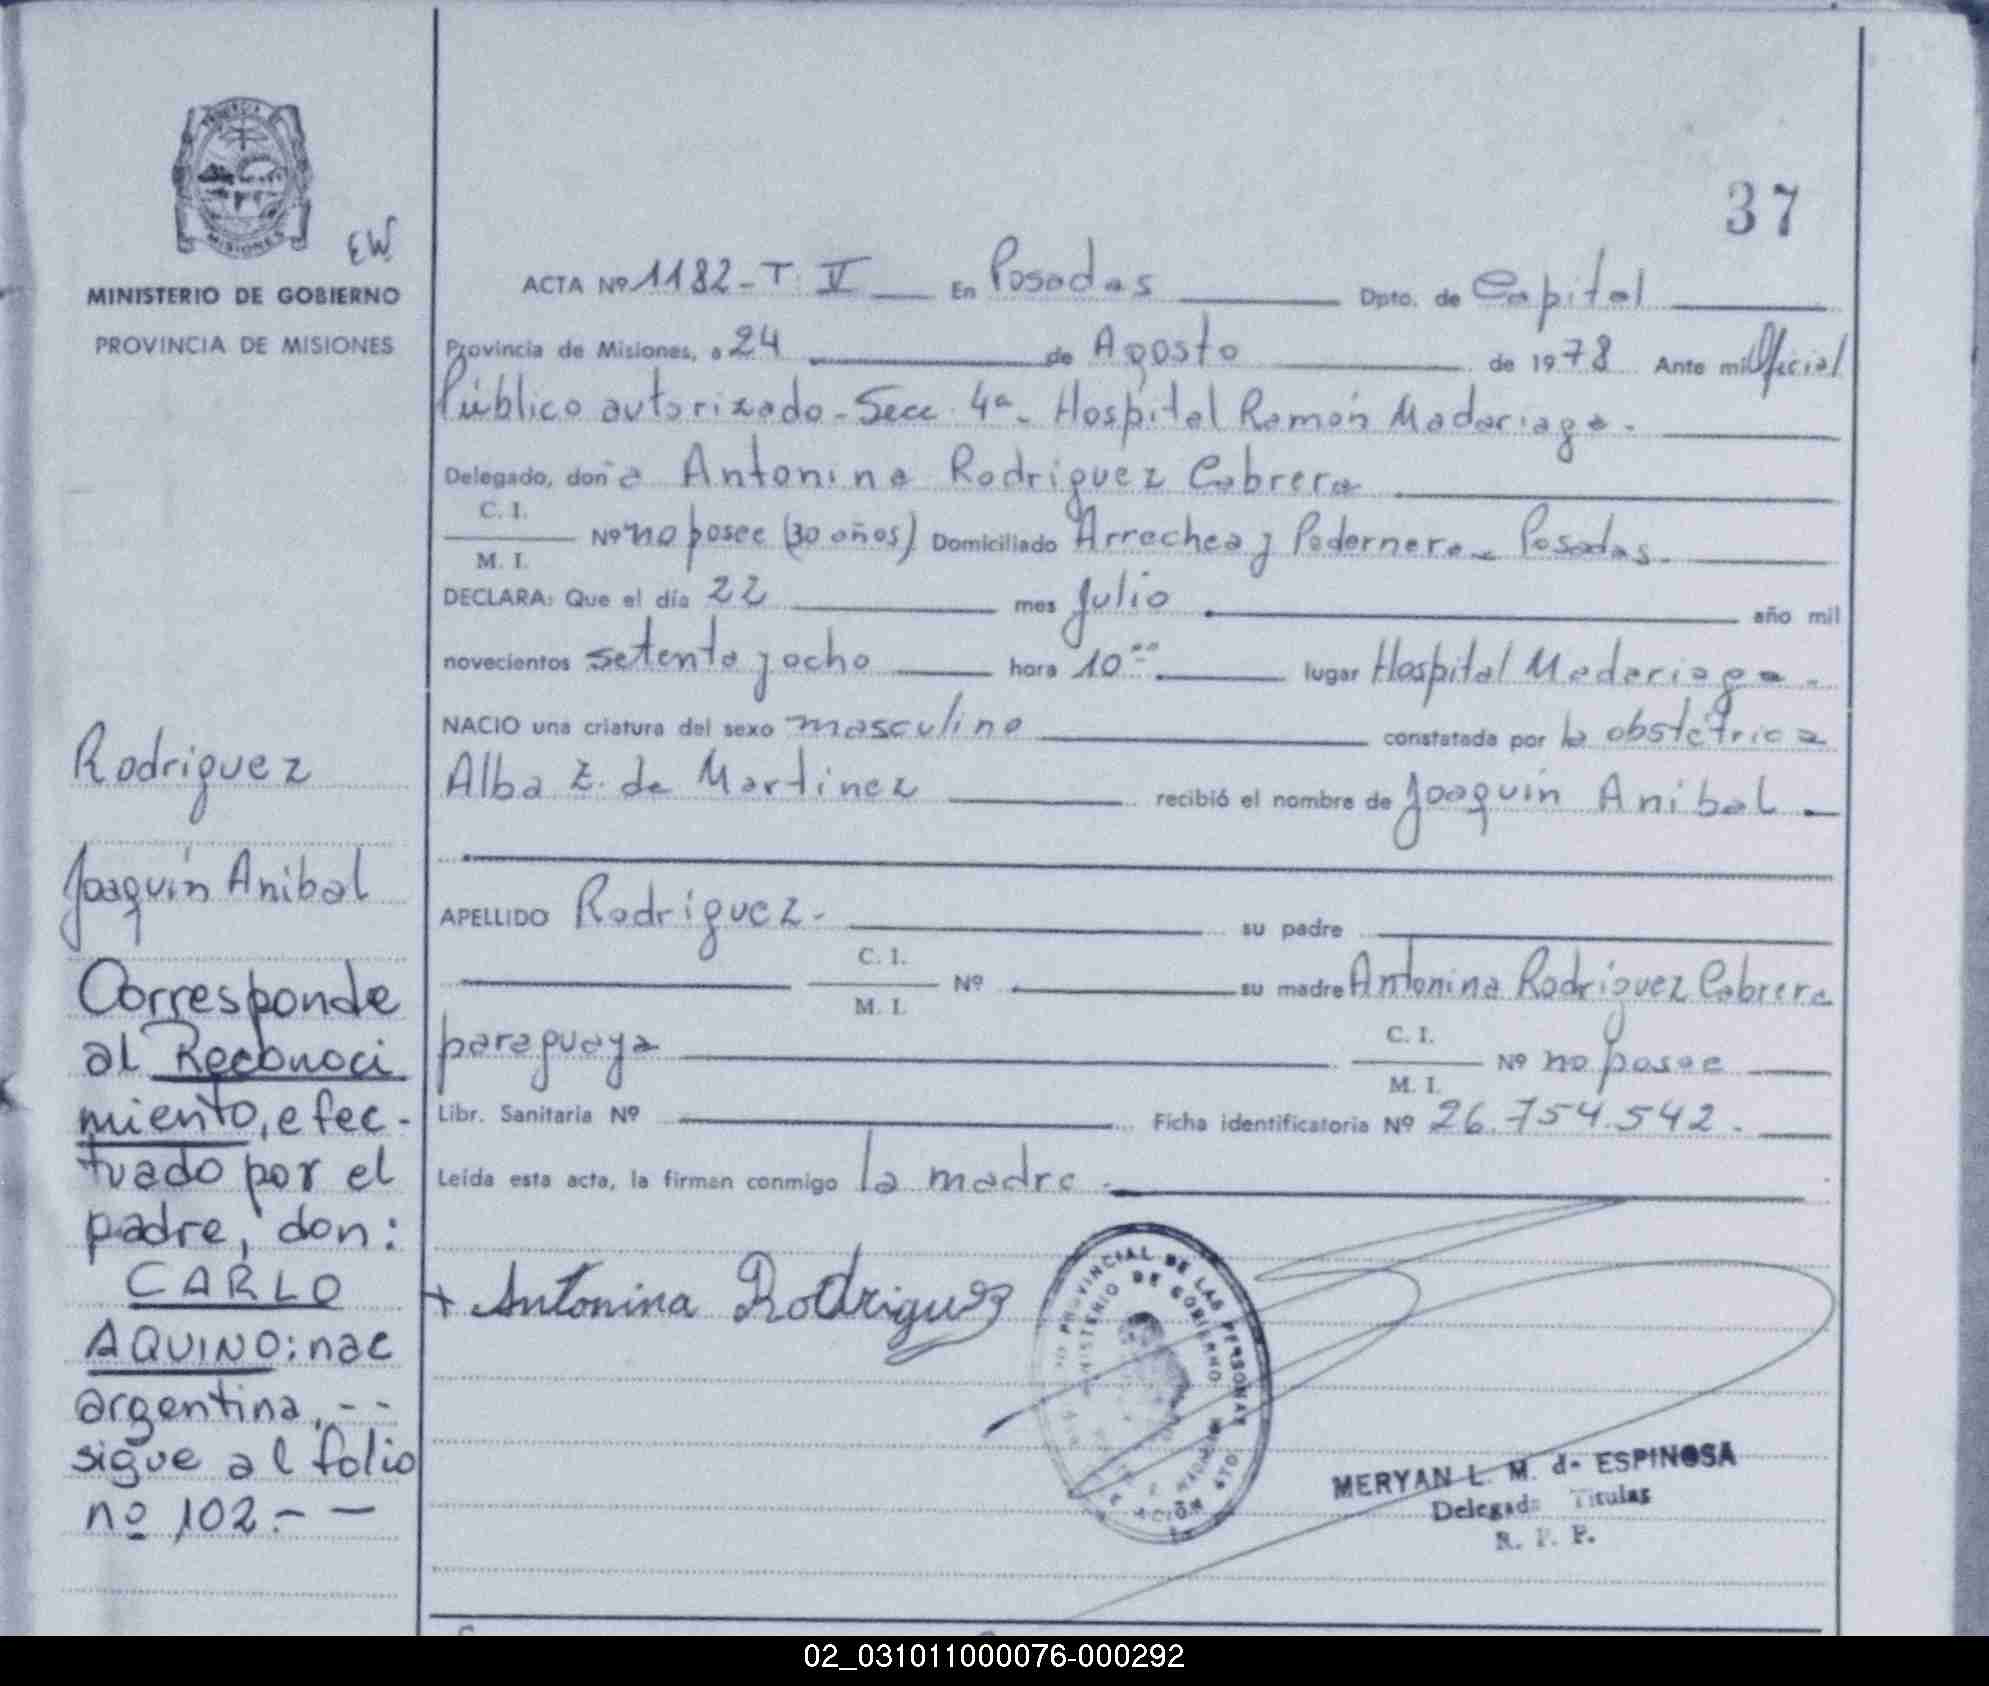 PROVINCIA DE
MISIONES
EW
MINISTERIO DE GOBIERNO
PROVINCIA DE MISIONES
37
ACTA Nº 1182-T. V En Posadas Dpto. de Capital
Provincia de Misiones, a 24 de Agosto de 1978 Ante mi Oficial
Público autorizado - Secc. 4ª - Hospital Ramón Madariaga.
Delegado, doña Antonina Rodriguez Cabrera
C. I.
M. I.
Nº no posee (30 años) Domiciliado Arrechea y Pedernera - Posadas.
DECLARA: Que el día 22 mes Julio año mil
novecientos setenta y ocho hora 10 lugar Hospital Madariaga.
NACIO una criatura del sexo masculino constatada por la obstétrica
Alba Z. de Martinez recibió el nombre de Joaquín Anibal
APELLIDO Rodriguez. su padre
C. I.
M. I.
Nº su madre Antonina Rodriguez Cabrera
paraguaya C. I.
M. I.
Nº no posee
Libr. Sanitaria Nº Ficha identificatoria Nº 26.754.542.
Leída esta acta, la firman conmigo la madre.
+ Antonina Rodriguez
PROVINCIAL DE LAS PERSONAS
MINISTERIO DE GOBIERNO
MERYAN L. M. de ESPINOSA
Delegada Titular
R. P. P.
Rodriguez
Joaquín Anibal
Corresponde
al Reconoci
miento, efec-
tuado por el
padre, don:
CARLO
AQUINO: nac
argentina, --
sigue al folio
nº 102.- -
02_031011000076-000292